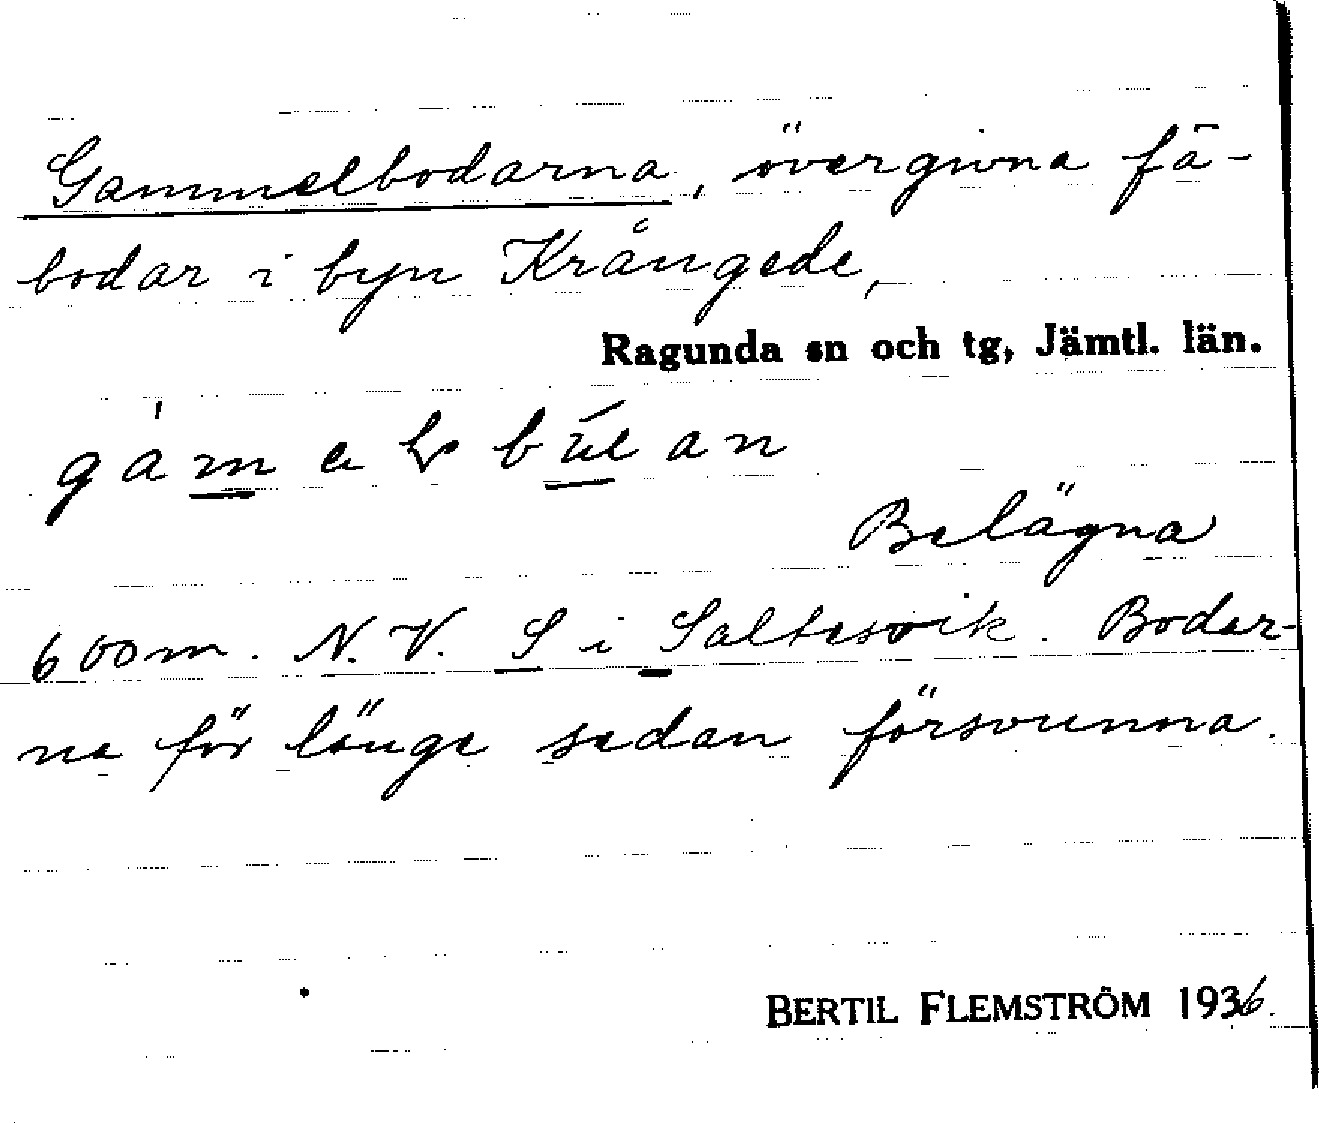 Gammelbodarna, övergivna fä-
bodar i byn Krångede,
Ragunda sn och tg, Jämtl. län.
Belägna
600m. N.V. S i Saltesvik. Bodar-
na för länge sedan försvunna.
BERTIL FLEMSTRÖM 1936.